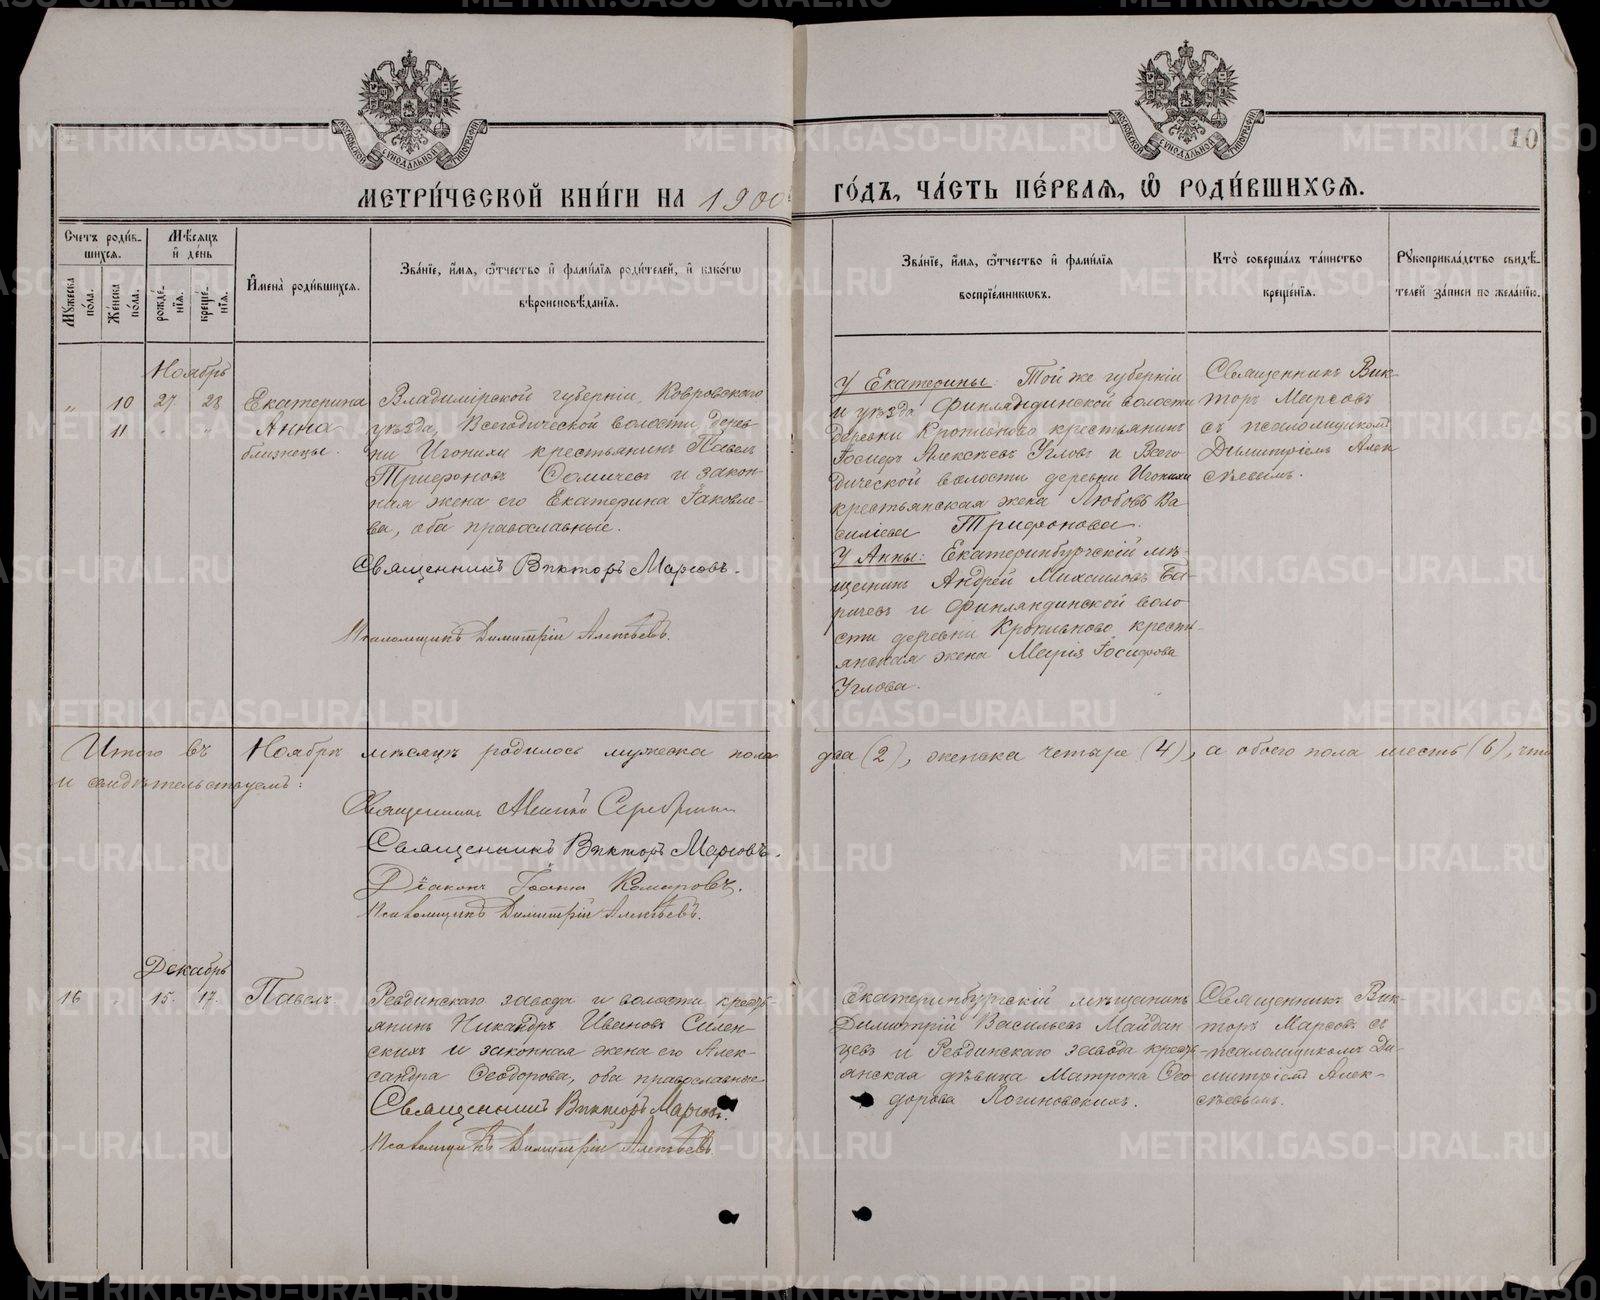 10
МЕТРИ́ЧЕСКОЙ КНИ́ГИ НА 1900й ГО́ДЪ, ЧА́СТЬ ПЕ́РВАѦ, Ѡ҆ РОДИ́ВШИХСѦ.
МОСКОВСКОЙ СѴНОДАЛЬНОЙ ТИПОГРАФІИ
МОСКОВСКОЙ СѴНОДАЛЬНОЙ ТИПОГРАФІИ
Счетъ роди́в-
шихсѧ.
Мꙋ́жеска по́ла.
Же́нска по́ла.
Мѣ́сѧцъ
и҆ де́нь
рожде́-
нїѧ.
креще́-
нїѧ.
И҆мена̀ роди́вшихсѧ.
Зва́нїе, и҆́мѧ, ѻ҆́тчество и҆ фами́лїѧ роди́телей, и҆ како́гѡ
вѣроисповѣ́данїѧ.
Зва́нїе, и҆́мѧ, ѻ҆́тчество и҆ фами́лїѧ
воспрїе́мниковъ.
Кто̀ соверша́лъ та́инство
креще́нїѧ.
Рꙋкоприкла́дство свидѣ́-
телей за́писи по жела́нїю.
Ноябрь
" 10 27. 28
11 " "
Екатерина
Анна
близнецы.
Владимірской губерніи, Ковровскаго
уѣзда, Всегодической волости, дерев-
ни Игонихи крестьянинъ Павелъ
Трифоновъ и закон-
ная жена его Екатерина Іаковле-
ва, оба православные.
Священникъ Викторъ Марсовъ.
Псаломщикъ Димитрій Алексѣевъ.
У Екатерины: Той же губерніи
и уѣзда Финляндинской волости
деревни Кропивново крестьянинъ
Іосифъ Алексѣевъ Угловъ и Всего
дической волости деревни Игонихи
крестьянская жена Любовь Ва
силіева Трифонова.
У Анны: Екатеринбургскій мѣ-
щанинъ Андрей Михаиловъ
и Финляндинской воло
сти деревни Кропивново кресть-
янская жена Марія Іосифова
Углова.
Священникъ Вик-
торъ Марсовъ
съ псаломщикомъ
Димитріемъ Алек
сѣевымъ.
Итого въ Ноябрѣ мѣсяцѣ родилось мужеска пола два (2), женска четыре (4), а обоего пола шесть (6), что
и свидѣтельствуемъ:
Священникъ
Священникъ Викторъ Марсовъ.
Діаконъ Іоаннъ Комаровъ.
Псаломщикъ Димитрій Алексѣевъ.
Декабрь
16 " 15. 17.
Павелъ.
Ревдинскаго завода и волости кресть-
янинъ Никандръ Ивановъ Силен-
скихъ и законная жена его Алек-
сандра Ѳеодорова, оба православные
Священникъ Викторъ Марсовъ.
Псаломщикъ Димитрій Алексѣевъ
Екатеринбургскій мѣщанинъ
Димитрій Васильевъ Майдан
цевъ и Ревдинскаго завода кресть-
янская дѣвица Матрона Ѳео
дорова Логиновскихъ.
Священникъ Вик-
торъ Марсовъ съ
псаломщикомъ Ди-
митріемъ Алек-
сѣевымъ.
METRIKI.GASO-URAL.RU